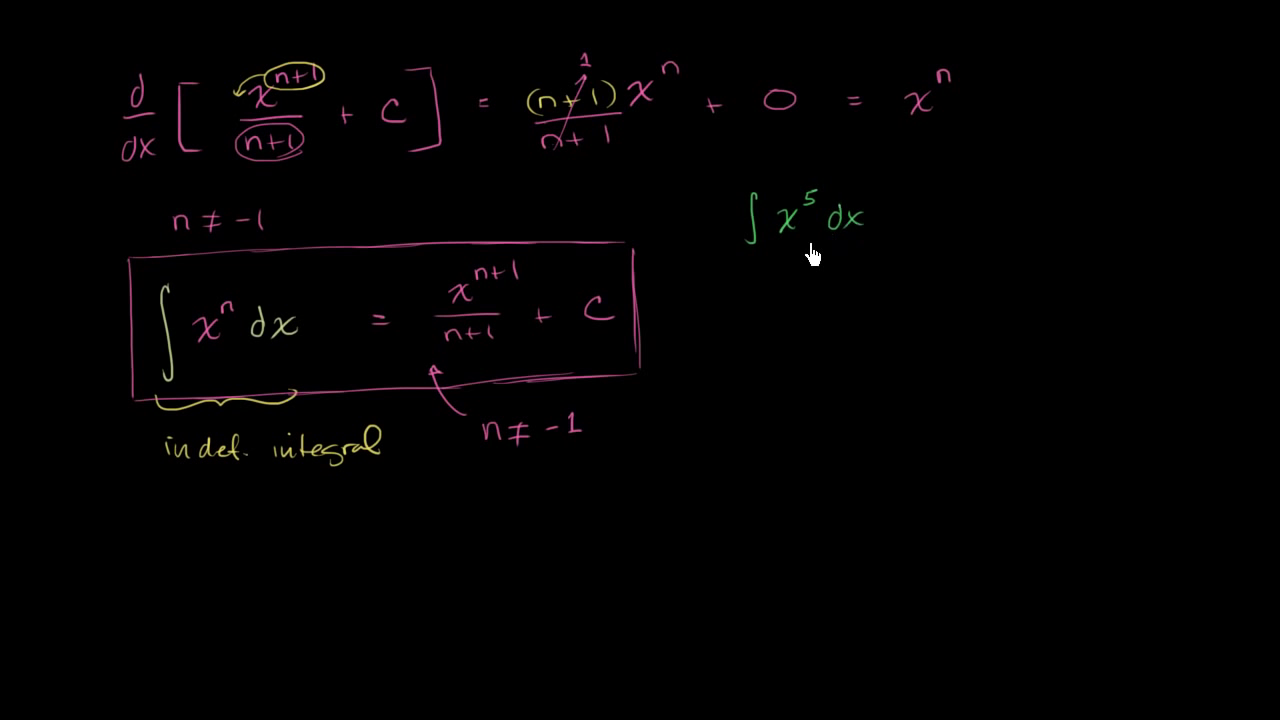 d/dx [ x^(n+1)/(n+1) + C ] = (n+1)x^n/(n+1) + 0 = x^n
1
∫ x^5 dx
n ≠ -1
∫ x^n dx = x^(n+1)/(n+1) + C
indef. integral
n ≠ -1